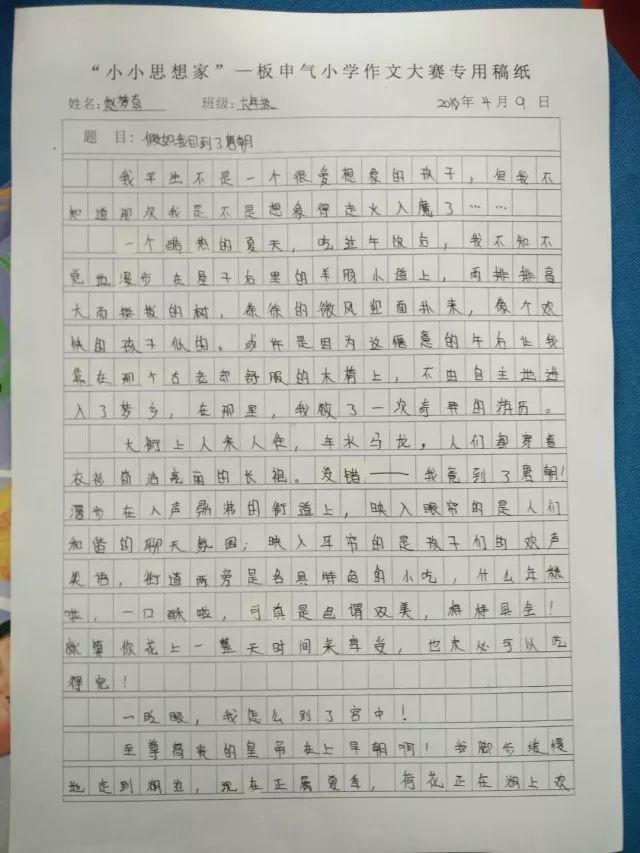 “小小思想家”一板申气小学作文大赛专用稿纸
姓名: 赵梦真 班级: 六年级 2019年 4月 9日
题 目: 假如我回到了唐朝
我平生不是一个很爱想象的孩子，但我不
知道那次我是不是想象得走火入魔了……
一个酷热的夏天，吃过午饭后，我不知不
觉地漫步在屋子后里的羊肠小道上，两排排高
大而挺拔的树，徐徐的微风迎面扑来，像个欢
快的孩子似的。或许是因为这惬意的午后让我
靠在那个古老却舒服的木椅上，不由自主地进
入了梦乡，在那里，我做了一次奇异的游历。
大街上人来人往，车水马龙，人们都穿着
衣衫简洁亮丽的长袍。没错——我竟到了唐朝！
漫步在人声鼎沸的街道上，映入眼帘的是人们
和谐的聊天氛围；映入耳帘的是孩子们的欢声
笑语，街道两旁是各具特色的小吃，什么年糕
啦，一口酥啦，可真是色谓双美，样样具全！
就算你花上一整天时间来享受，也未必可以吃
得完！
一眨眼，我怎么到了宫中！
至尊尊贵的皇帝在上早朝啊！我脚步缓慢
地走到湖边，现在正属夏季，荷花正在湖上欢